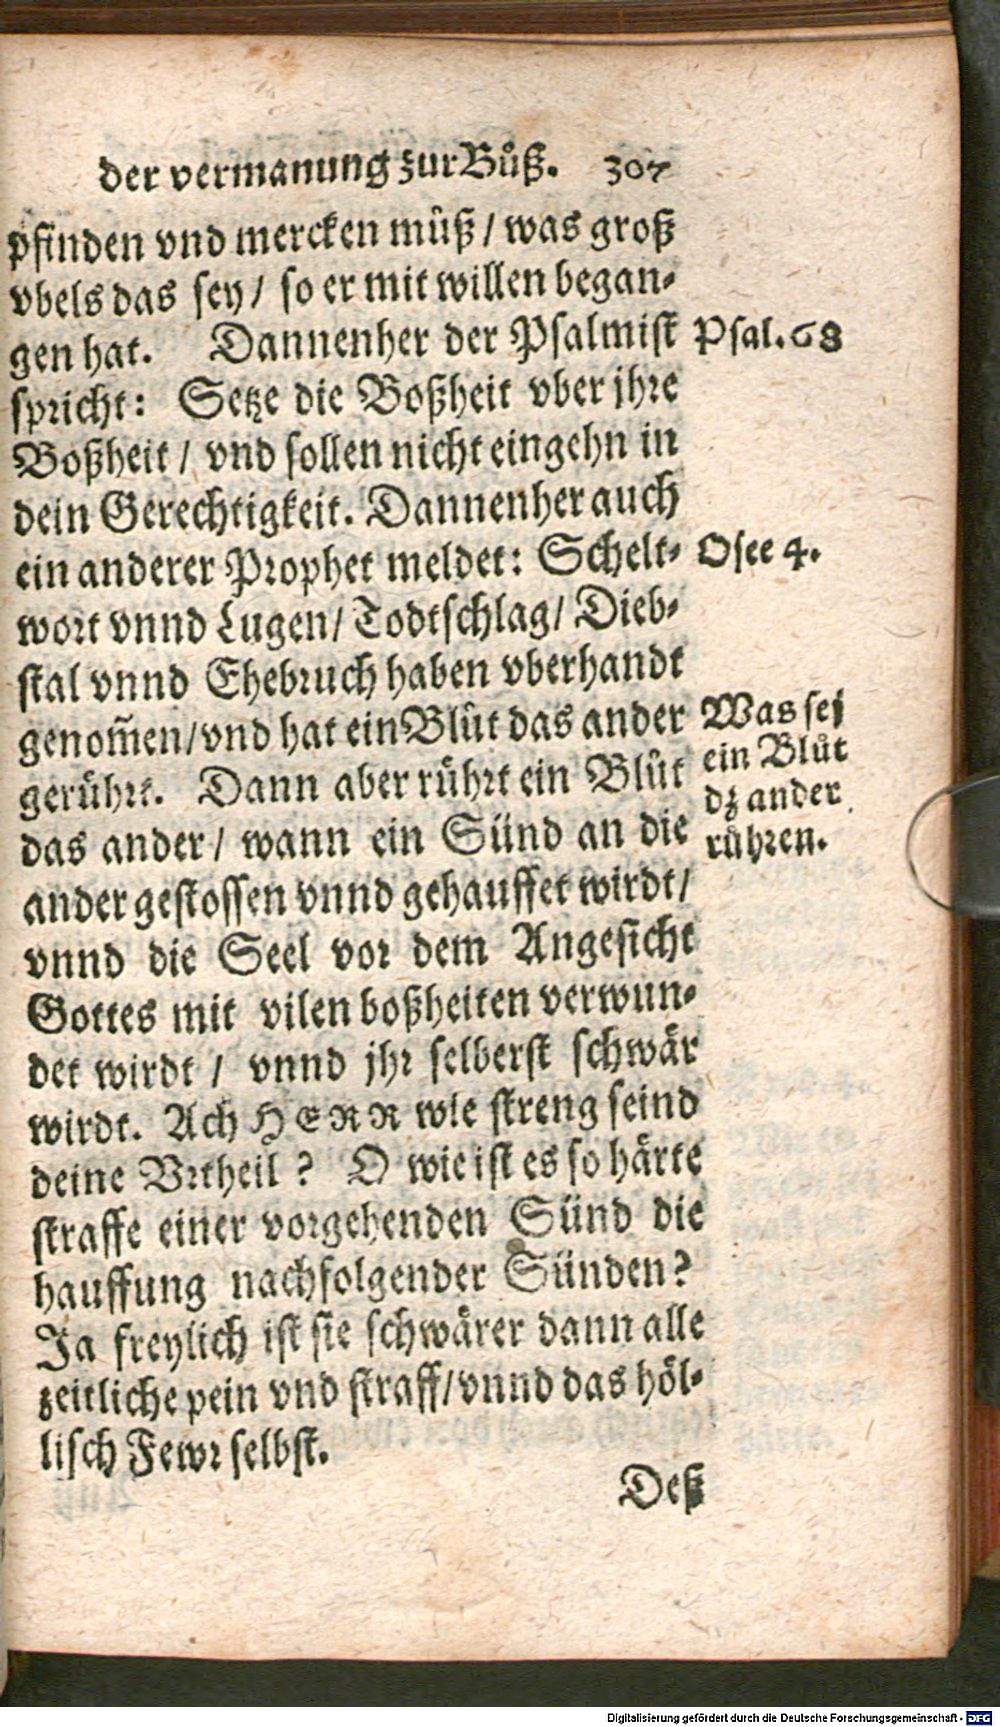 der vermanung zur Buͦß. 307
pfinden vnd mercken muͦß / was groß
vbels das sey / so er mit willen began⸗
gen hat. Dannenher der Psalmist
Psal. 68
spricht: Setze die Boßheit vber jhre
Boßheit / vnd sollen nicht eingehn in
dein Gerechtigkeit. Dannenher auch
ein anderer Prophet meldet: Schelt⸗
Osee 4.
wort vnnd Lugen / Todtschlag / Dieb⸗
stal vnnd Ehebruch haben vberhandt
genom̃en / vnd hat ein Bluͦt das ander
Was sej
gerührt. Dann aber rührt ein Bluͦt
ein Bluͦt
das ander / wann ein Sünd an die
dz ander
rühren.
ander gestossen vnnd gehauffet wirdt /
vnnd die Seel vor dem Angesicht
Gottes mit vilen boßheiten verwun⸗
det wirdt / vnnd jhr selberst schwaͤr
wirdt. Ach HERR wie streng seind
deine Vrtheil? O wie ist es so haͤrte
straffe einer vorgehenden Sünd die
hauffung nachfolgender Sünden?
Ja freylich ist sie schwaͤrer dann alle
zeitliche pein vnd straff / vnnd das hoͤl⸗
lisch Fewr selbst.
Deß
Digitalisierung gefördert durch die Deutsche Forschungsgemeinschaft - DFG